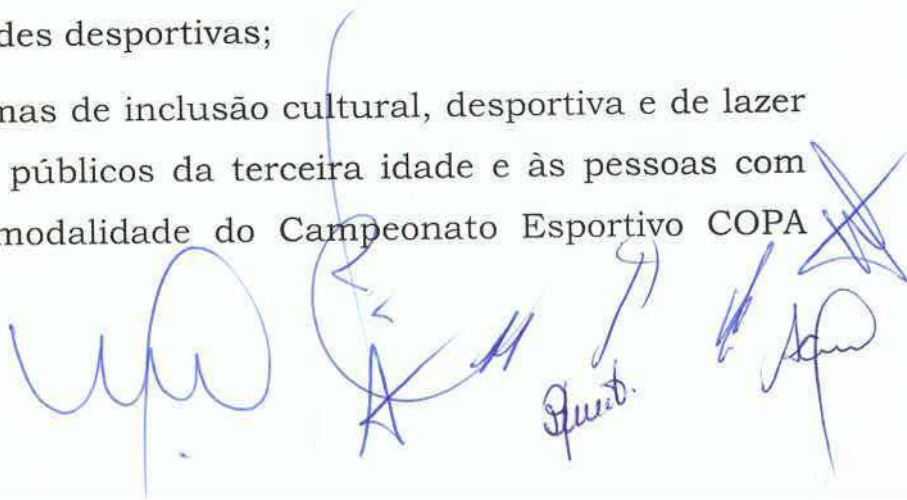 des desportivas;
mas de inclusão cultural, desportiva e de lazer
públicos da terceira idade e às pessoas com
modalidade do Campeonato Esportivo COPA